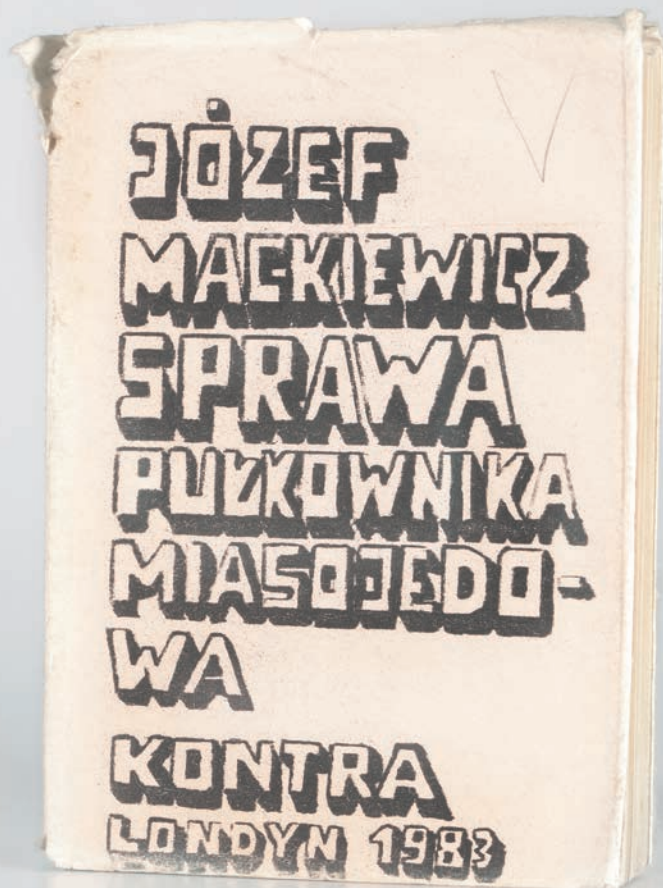 JÓZEF
MACKIEWICZ
SPRAWA
PUŁKOWNIKA
MIASOJEDO-
WA
KONTRA
LONDYN 1983